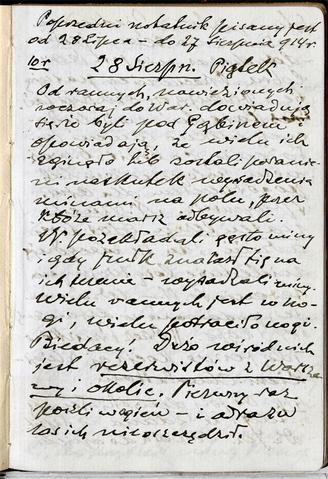 Poprzedni notatnik pisany jest
od 28 Lipca - do 27 Sierpnia 914 r.
10 r 28 Sierpn. Piątek
Od rannych, nawiezionych
wczoraj do War. dowiaduję
się że byli pod Gąbinem i
opowiadają, że wielu ich
zginęło lub zostali poranie-
ni naskutek wysadzenia
minami na polu, przez
które marsz odbywali.
N. pozakładali gęsto miny
i gdy pułk znalazł się na
ich terenie - wysadzali miny.
Wielu rannych jest w no-
gi, wielu potraciło nogi.
Biedacy! Dużo wśród nich
jest rezerwistów z Warsza-
wy i okolic. Pierwszy raz
poszli w ogień - i odrazu
los ich nie oszczędził.